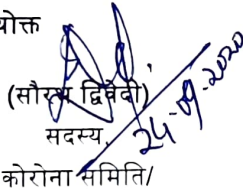 योक्त
(सौरभ द्विवेदी)
सदस्य,
24-09-2020
कोरोना समिति/